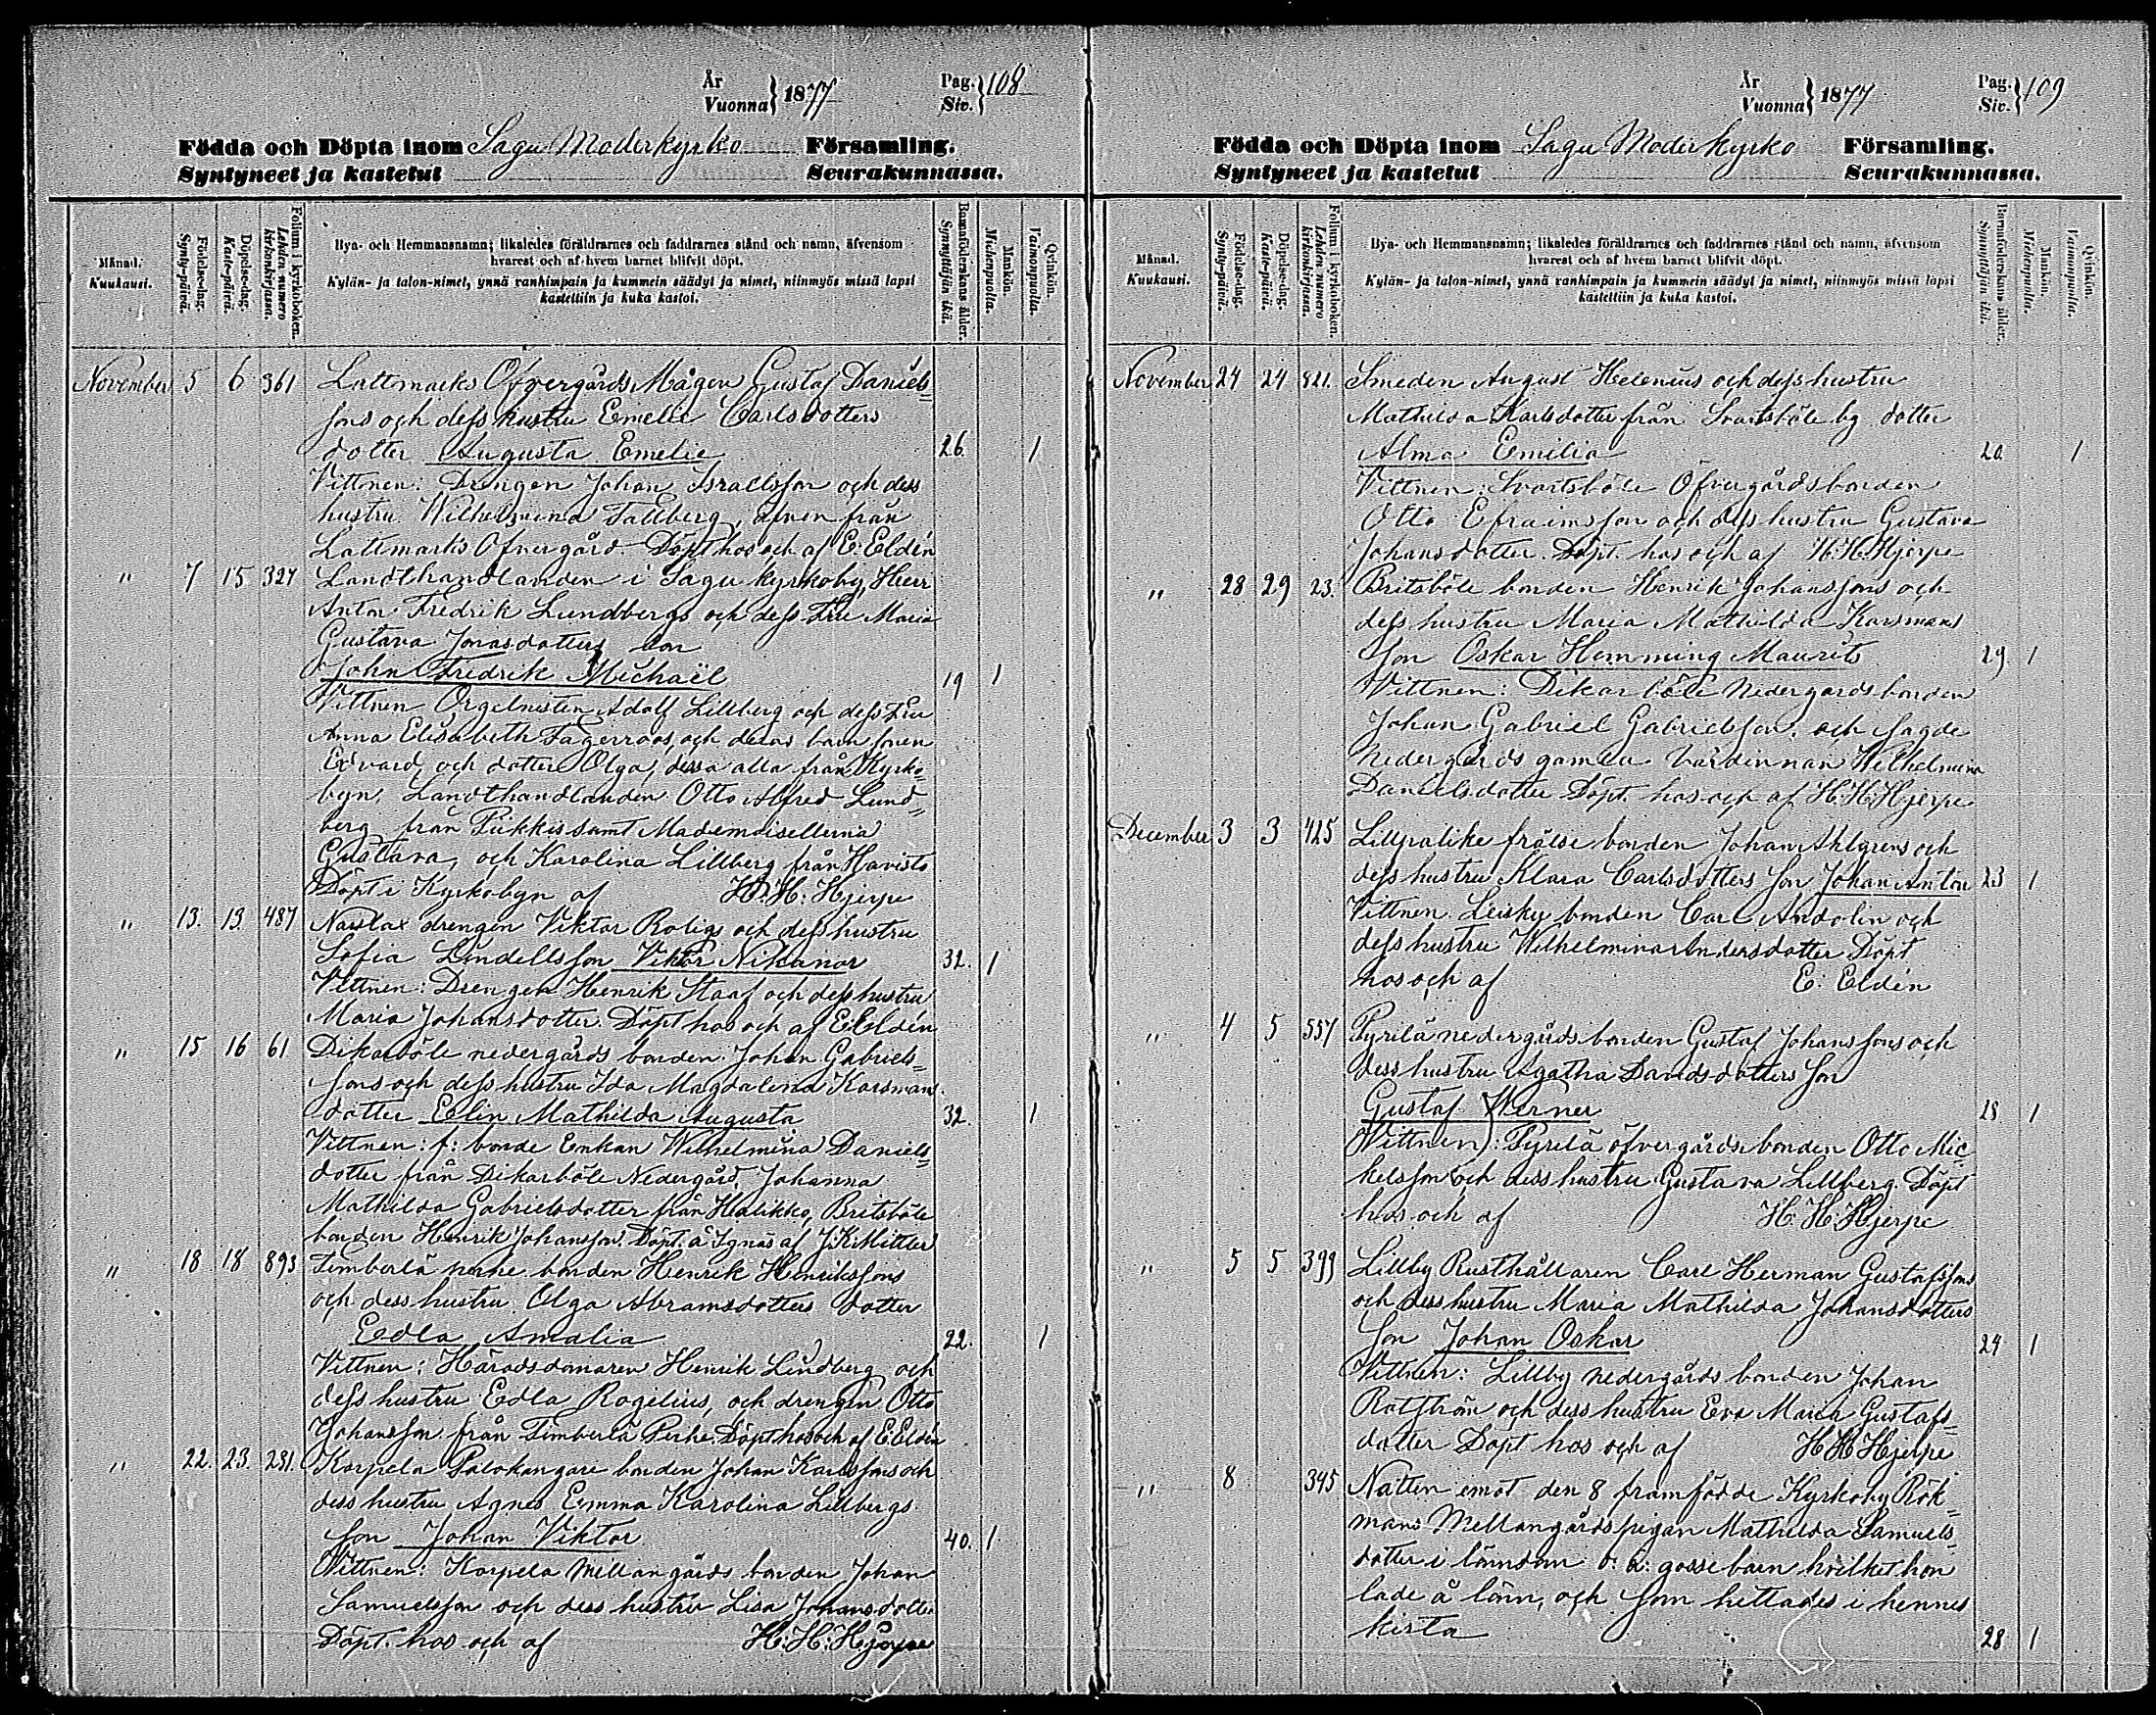 År
Vuonna } 1877
Pag.
Siv. } 108
Födda och Döpta inom Sagu Moderkyrko Församling.
Syntyneet ja kastetut Seurakunnassa.
Månad.
Kuukausi.
Födelse-dag.
Synty-päivä.
Döpelse-dag.
Kaste-päivä.
Folium i kyrkoboken.
Lehden numero
kirkonkirjassa.
Bya- och Hemmansnamn; likaledes föräldrarnes och faddrarnes stånd och namn, äfvensom
hvarest och af hvem barnet blifvit döpt.
Kylän- ja talon-nimet, ynnä vanhimpain ja kummein säädyt ja nimet, niinmyös missä lapsi
kastettiin ja kuka kastoi.
Barnaföderskans ålder.
Synnyttäjän ikä.
Mankön.
Miehenpuolta.
Qvinkön.
Vaimonpuolta.
November 5 6 361 Lattmarks Öfvergårds Mågen Gustaf Daniels
sons och dess hustru Emelie Carlsdotters
dotter Augusta Emelie 26. 1
Vittnen: Drengen Johan Israelsson och dess
hustru Wilhelmina Tallberg, äfven från
Lattmarks Öfvergård. Döpt hos och af E: Eldén
" 7 15 327 Landthandlanden i Sagu kyrkoby, Herr
Anton Fredrik Lundbergs och dess Fru Maria
Gustava Jonasdotters son
John Fredrik Michaël 19 1
Vittnen Orgelnisten Adolf Lillberg och dess Fru
Anna Elisabeth Fagerroos, och deras barn sonen
Edvard, och dotter Olga, dessa alla från Kyrko=
byn, Landthandlanden Otto Alfred Lund=
berg från Pikkis samt Mademoisellerna
Gustava, och Karolina Lillberg från Havisto
Döpt i Kyrkobyn af H: H: Hjerpe
" 13. 13. 487 drengen Viktor Roligs och dess hustru
Sofia Lindells son Viktor Nikanor 32. 1
Vittnen: Drengen Henrik Staaf och dess hustru
Maria Johansdotter. Döpt hos och af E: Eldén
" 15 16 61 Dikarböle nedergårds bonden Johan Gabriels=
sons och dess hustru Ida Magdalena Karsmans
dotter Elin Mathilda Augusta 32. 1
Vittnen: f: bonde Enkan Wilhelmina Daniels=
dotter från Dikarböle Nedergård, Johanna
Mathilda Gabrielsdotter från Halikko, Britsböle
bonden Henrik Johansson. Döpt å Ignäs af J:K:Mittler
" 18 18 893 Timberlä bonden Henrik Henrikssons
och dess hustru Olga Abramsdotters dotter
Edla Amalia 22. 1
Vittnen: Häradsdomaren Henrik Lindberg och
dess hustru Edla Rogelius, och drengen Otto
Johansson från Timberlä Perhe. Döpt hos och af E Eldén
" 22. 23. 281. Korpela Palokangare bonden Johan Karlssons och
dess hustru Agnes Emma Karolina Lillbergs
son Johan Viktor 40. 1
Vittnen: Korpela Mellangårds bonden Johan
Samuelsson och dess hustru Lisa Johansdotter
Döpt hos och af H: H: Hjerpe
År
Vuonna } 1877
Pag.
Siv. } 109
Födda och Döpta inom Sagu Moderkyrko Församling.
Syntyneet ja kastetut Seurakunnassa.
Månad.
Kuukausi.
Födelse-dag.
Synty-päivä.
Döpelse-dag.
Kaste-päivä.
Folium i kyrkoboken.
Lehden numero
kirkonkirjassa.
Bya- och Hemmansnamn; likaledes föräldrarnes och faddrarnes stånd och namn, äfvensom
hvarest och af hvem barnet blifvit döpt.
Kylän- ja talon-nimet, ynnä vanhimpain ja kummein säädyt ja nimet, niinmyös missä lapsi
kastettiin ja kuka kastoi.
Barnaföderskans ålder.
Synnyttäjän ikä.
Mankön.
Miehenpuolta.
Qvinkön.
Vaimonpuolta.
November 24 24 821. Smeden August Helenius och dess hustru
Mathilda Karlsdotter från Svartsböle by dotter
Alma Emilia 20. 1
Vittnen: Svartsböle Öfvergårdsbonden
Otto Efraimsson och dess hustru Gustava
Johansdotter. Döpt hos och af H.H.Hjerpe
" 28 29 23. Britsböle bonden Henrik Johanssons och
dess hustru Maria Mathilda Karsmans
son Oskar Hemming Maurits 29 1
Vittnen: Dikarböle Nedergårds bonden
Johan Gabriel Gabrielsson, och Sagde
Nedergårds gamla värdinnan Wilhelmina
Danielsdotter Döpt hos och af H. H. Hjerpe
December 3 3 425 Lillpalike frälse bonden Johan Ahlgrens och
dess hustru Klara Carlsdotters son Johan Anton 23 1
Vittnen bonden Carl Andolin och
dess hustru Wilhelmina Andersdotter Döpt
hos och af E: Eldén
" 4 5 557 Pyrilä nedergårds bonden Gustaf Johanssons och
dess hustru Agatha Davidsdotters son
Gustaf Werner 28 1
(Vittnen): Pyrilä öfvergårds bonden Otto Mic=
kelsson och dess hustru Gustava Lillberg. Döpt
hos och af H. H. Hjerpe
" 5 5 399 Lillby Rusthållaren Carl Herman Gustafssons
och dess hustru Maria Mathilda Johansdotters
son Johan Oskar 24 1
Vittnen: Lillby nedergårds bonden Johan
och dess hustru Eva Maria Gustafs=
dotter Döpt hos och af H H Hjerpe
" 8 345 Natten emot den 8 framfödde Kyrkoby Rök=
mans Mellangårds pigan Mathilda Samuels
dotter i lönndom o: ä: gossebarn hvilket hon
lade å lönn, och som hittades i hennes
kista 28 1